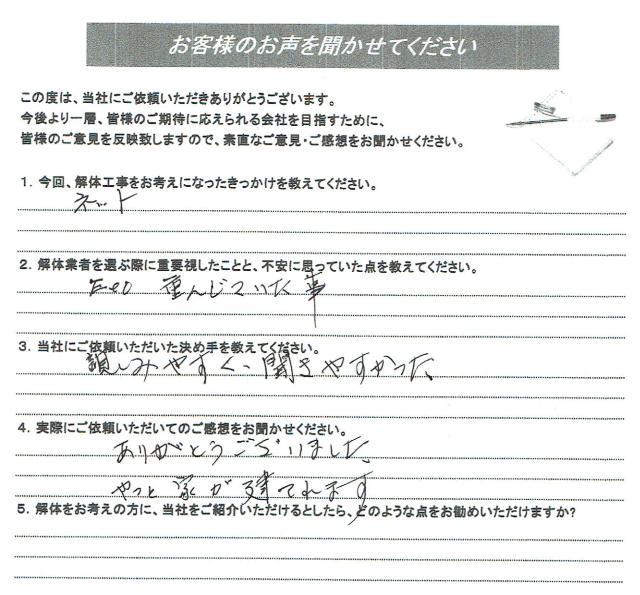 お客様のお声を聞かせてください
この度は、当社にご依頼いただきありがとうございます。
今後より一層、皆様のご期待に応えられる会社を目指すために、
皆様のご意見を反映致しますので、素直なご意見・ご感想をお聞かせください。
1. 今回、解体工事をお考えになったきっかけを教えてください。
ネット
2. 解体業者を選ぶ際に重要視したことと、不安に思っていた点を教えてください。
重んじていた事
3. 当社にご依頼いただいた決め手を教えてください。
親しみやすく、聞きやすかった
4. 実際にご依頼いただいてのご感想をお聞かせください。
ありがとうございました
やっと家が建てれます
5. 解体をお考えの方に、当社をご紹介いただけるとしたら、どのような点をお勧めいただけますか?